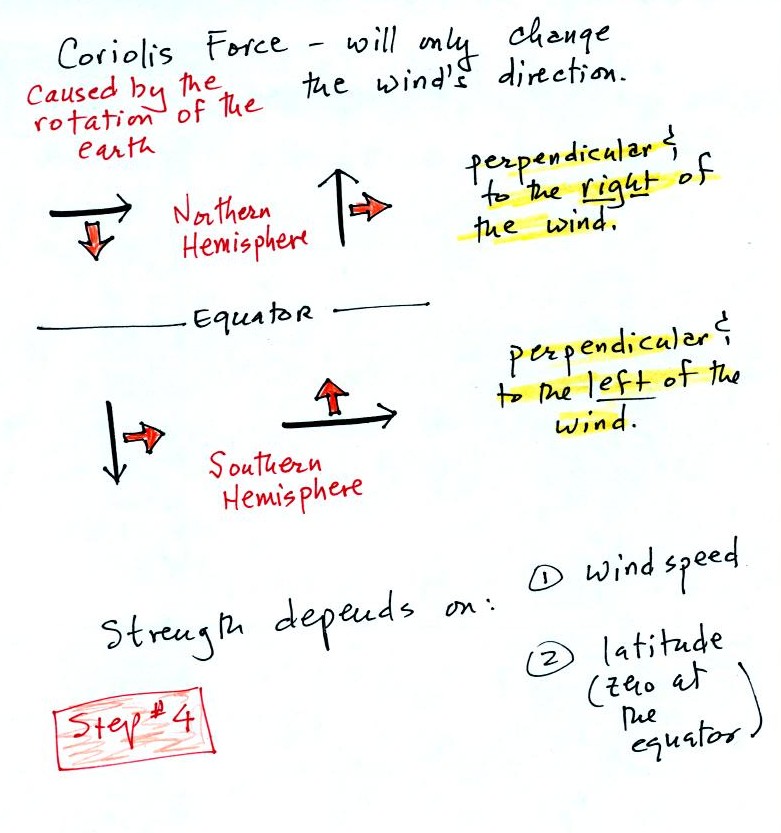 Coriolis Force - will only change
the wind's direction.
Caused by the
rotation of the
earth
perpendicular &
to the right of
the wind.
Northern
Hemisphere
Equator
perpendicular &
to the left of the
wind.
Southern
Hemisphere
Strength depends on:
① wind speed
② latitude
(zero at
the
equator)
Step #4